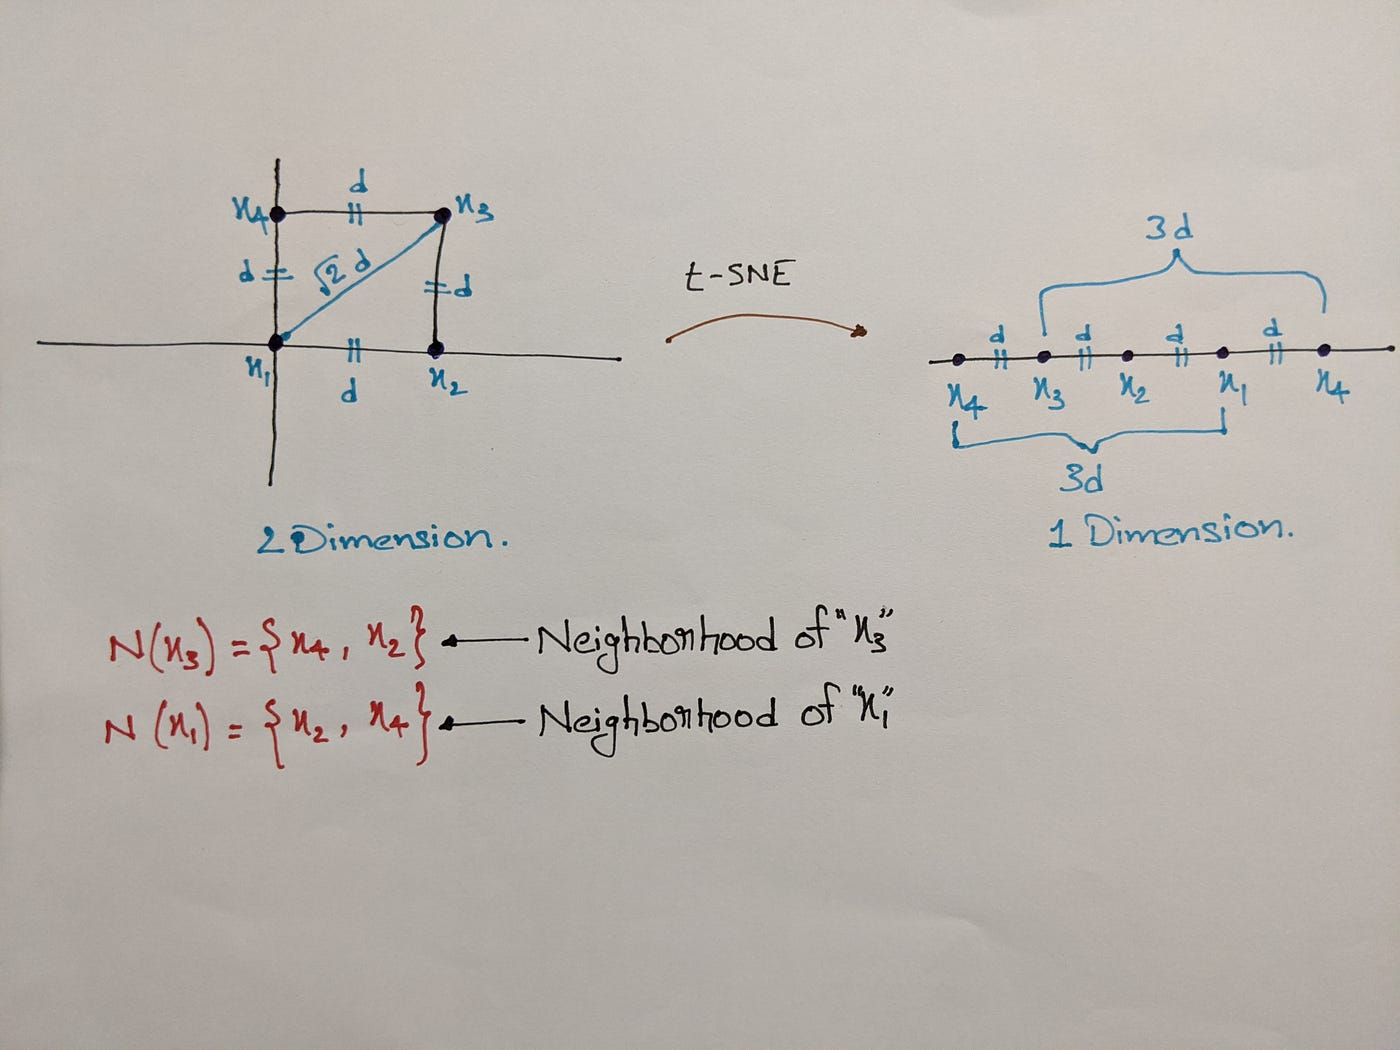 d
x₄ x₃
d √2 d d
x₁ d x₂
t-SNE
3d
d d d d
x₄ x₃ x₂ x₁ x₄
3d
2 Dimension.
1 Dimension.
N(x₃) = {x₄, x₂} ← Neighborhood of "x₃"
N(x₁) = {x₂, x₄} ← Neighborhood of "x₁"